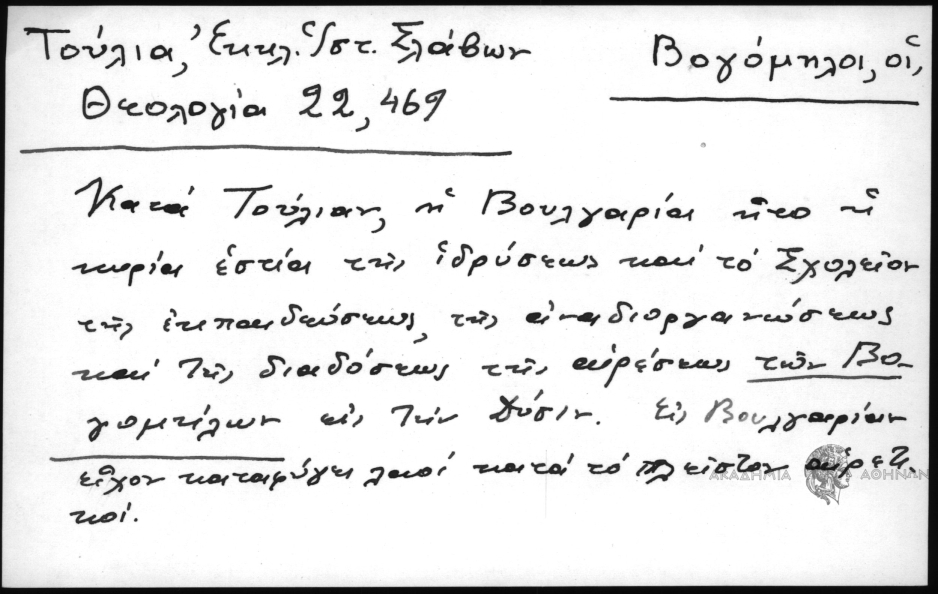 Τούλια, Ἐκκλ. Ἱστ. Σλάβων
Θεολογία 22, 469
Βογόμηλοι, οἱ,
Κατά Τούλιαν, ἡ Βουλγαρία ἦτο ἡ
κυρία ἑστία τῆς ἱδρύσεως καί τό Σχολεῖον
τῆς ἐκπαιδεύσεως, τῆς ἀναδιοργανώσεως
καί τῆς διαδόσεως τῆς αἱρέσεως τῶν Βο-
γομίλων εἰς τήν Δύσιν. Εἰς Βουλγαρίαν
εἶχον καταφύγει λαοί κατά τό πλεῖστον αἱρετι-
κοί.
ΑΚΑΔΗΜΙΑ ΑΘΗΝΩΝ